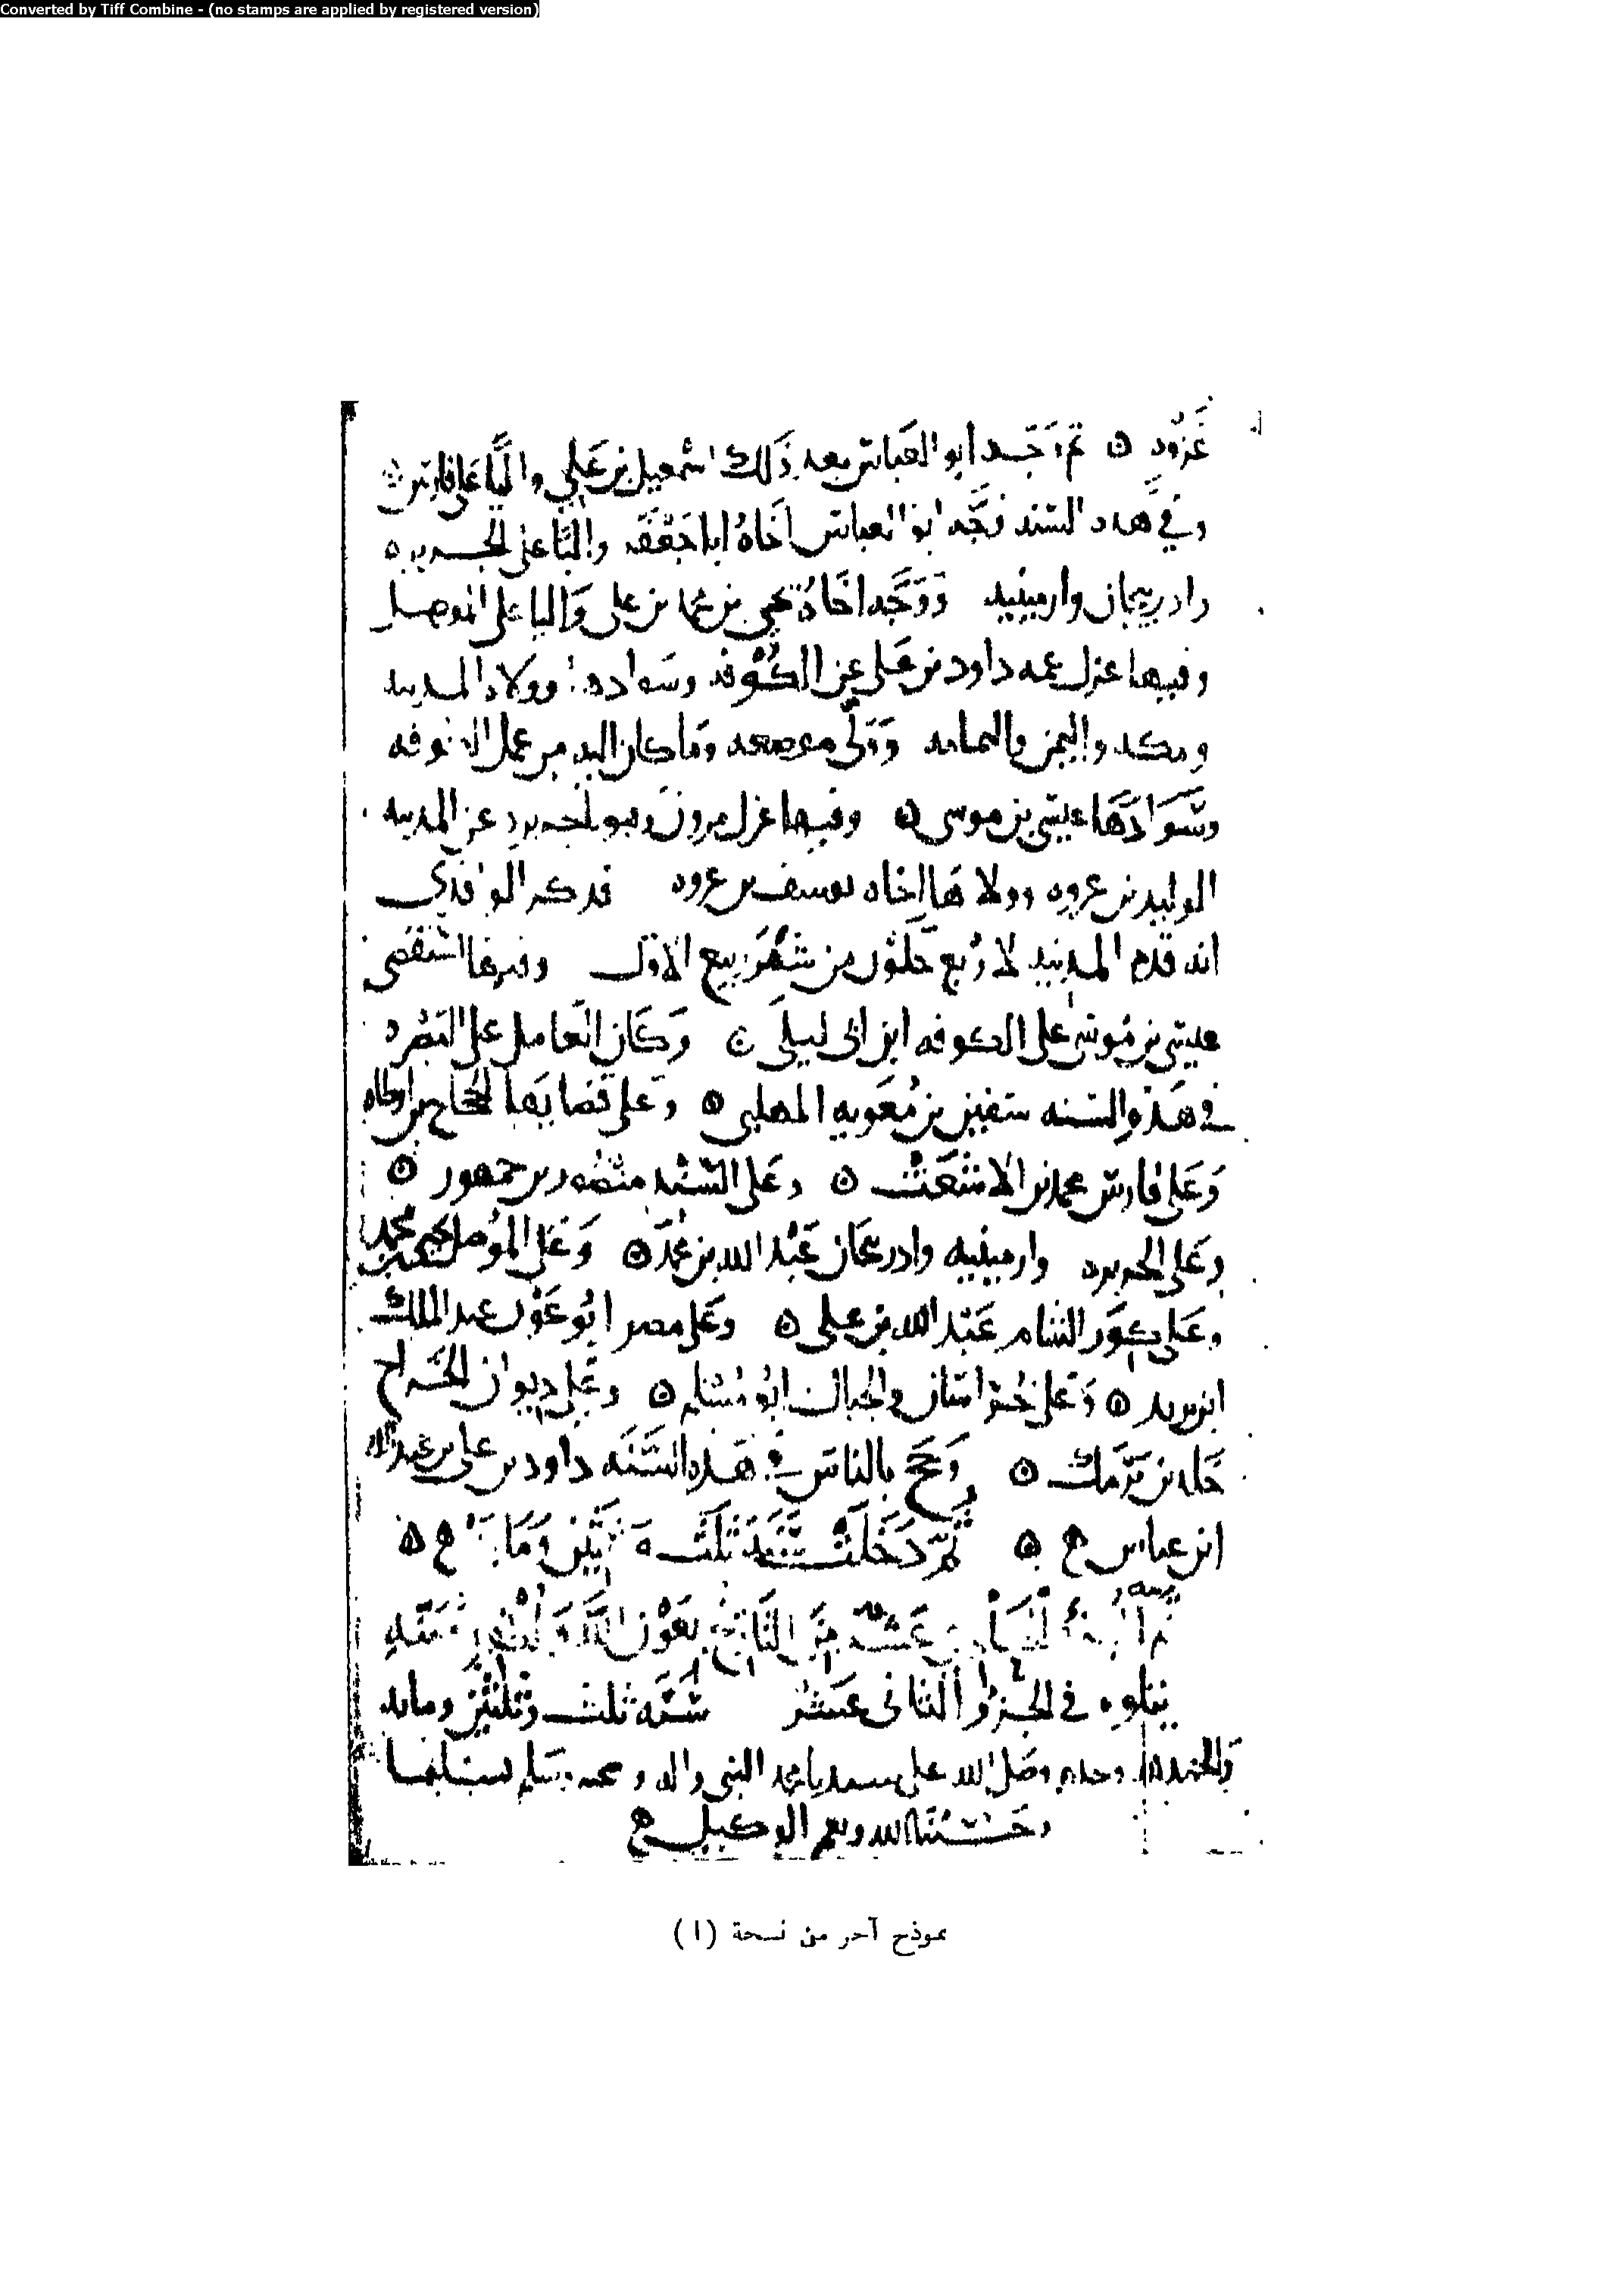 Converted by Tiff Combine - (no stamps are applied by registered version)
ثم وجه ابو العباس بعد ذلك اسمعيل بن علي واليا على فارس
وفي هذه السنه وجه ابو العباس اخاه ابا جعفر واليا على الجزيره
واذربيجان وارمينيه ووجه اخاه يحيى بن محمد بن علي واليا على الموصل
وفيها عزل عمه داود بن علي عن الكوفه وسوادها وولاه المدينه
ومكه واليمن واليمامه وولى موضعه وما كان اليه من عمل الكوفه
وسوادها عيسى بن موسى وفيها عزل مرون وهو بالجزيره عن المدينه
الوليد بن عروه وولاها اخاه يوسف بن عروه فذكر الواقدي
انه قدم المدينه لاربع خلون من شهر ربيع الاول وفيها استقضى
عيسى بن موسى على الكوفه ابن ابي ليلى وكان العامل على البصره
في هذه السنه سفين بن معويه المهلبي وعلى قضايها الحجاج بن ارطاه
وعلى فارس محمد بن الاشعث وعلى السند منصور بن جمهور
وعلى الجزيره وارمينيه واذربيجان عبد الله بن محمد وعلى الموصل يحيى بن محمد
وعلى كور الشام عبد الله بن علي وعلى مصر ابو عون عبد الملك
ابن يزيد وعلى خراسان والجبال ابو مسلم وعلى ديوان الخراج
خلد بن برمك وحج بالناس في هذه السنه داود بن علي بن عبد الله
ابن عباس ثم دخلت سنه ثلث وثلثين ومايه
عشر من التاريخ بعون الله
يتلوه في الجزو الثاني عشر سنه ثلث وثلثين ومايه
والحمد لله وحده وصلى الله على سيدنا محمد النبي واله وصحبه وسلم تسليما
وحسبنا الله ونعم الوكيل
نموذج آخر من نسخة (ا)